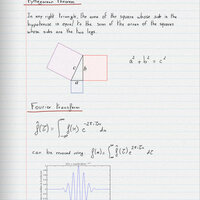 Pythagorean Theorem
In any right triangle, the area of the square whose side is the
hypotenuse is equal to the sum of the areas of the squares
whose sides are the two legs.
c b
a
a² + b² = c²
Fourier transform
f̂(ξ) = ∫ f(x) e^{-2πixξ} dx
can be reversed using f(x) = ∫ f̂(ξ) e^{2πixξ} dξ